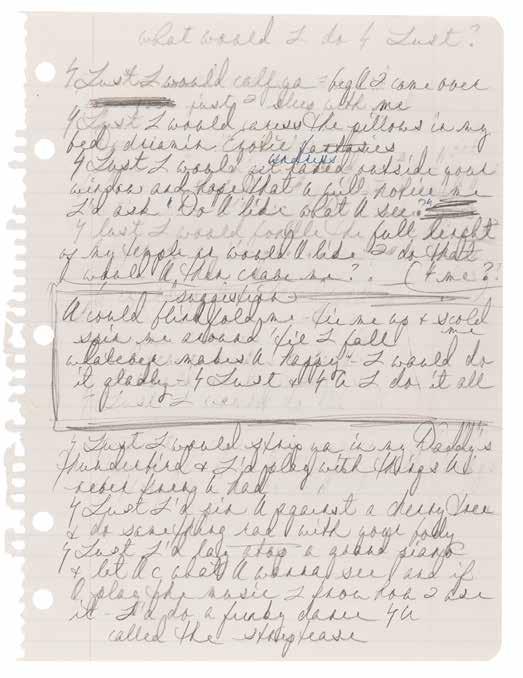 what would I do 4 Lust?
4 Lust I would call ya - beg 2 come over
just 2 sleep with me
4 Lust I would caress the pillows in my
bed, dreamin Exotic Fantasies
undress
4 Lust I would sit naked outside your
window and hope that U will notice me
I'd ask "Do U like what U see?"
4 Lust I would fondle the full height
of my temple or would U like 2 do that
would U then crave me? (+ me?)
suggestion
U could blindfold me - tie me up & scold me
spin me around 'til I fall
whatever makes U happy - I would do
it gladly - 4 Lust & 4 U I do it all
4 Lust I would do
4 Lust I would strip ya in my Daddy's
Thunderbird & I'd play with things U
never knew U had
4 Lust I'd pin U against a cherry tree
& do something rad with your body
4 Lust I'd lay atop a grand piano
& let U c what U wanna see and if
U play the music I know how 2 use
it - I'd do a funky dance 4 U
called the striptease